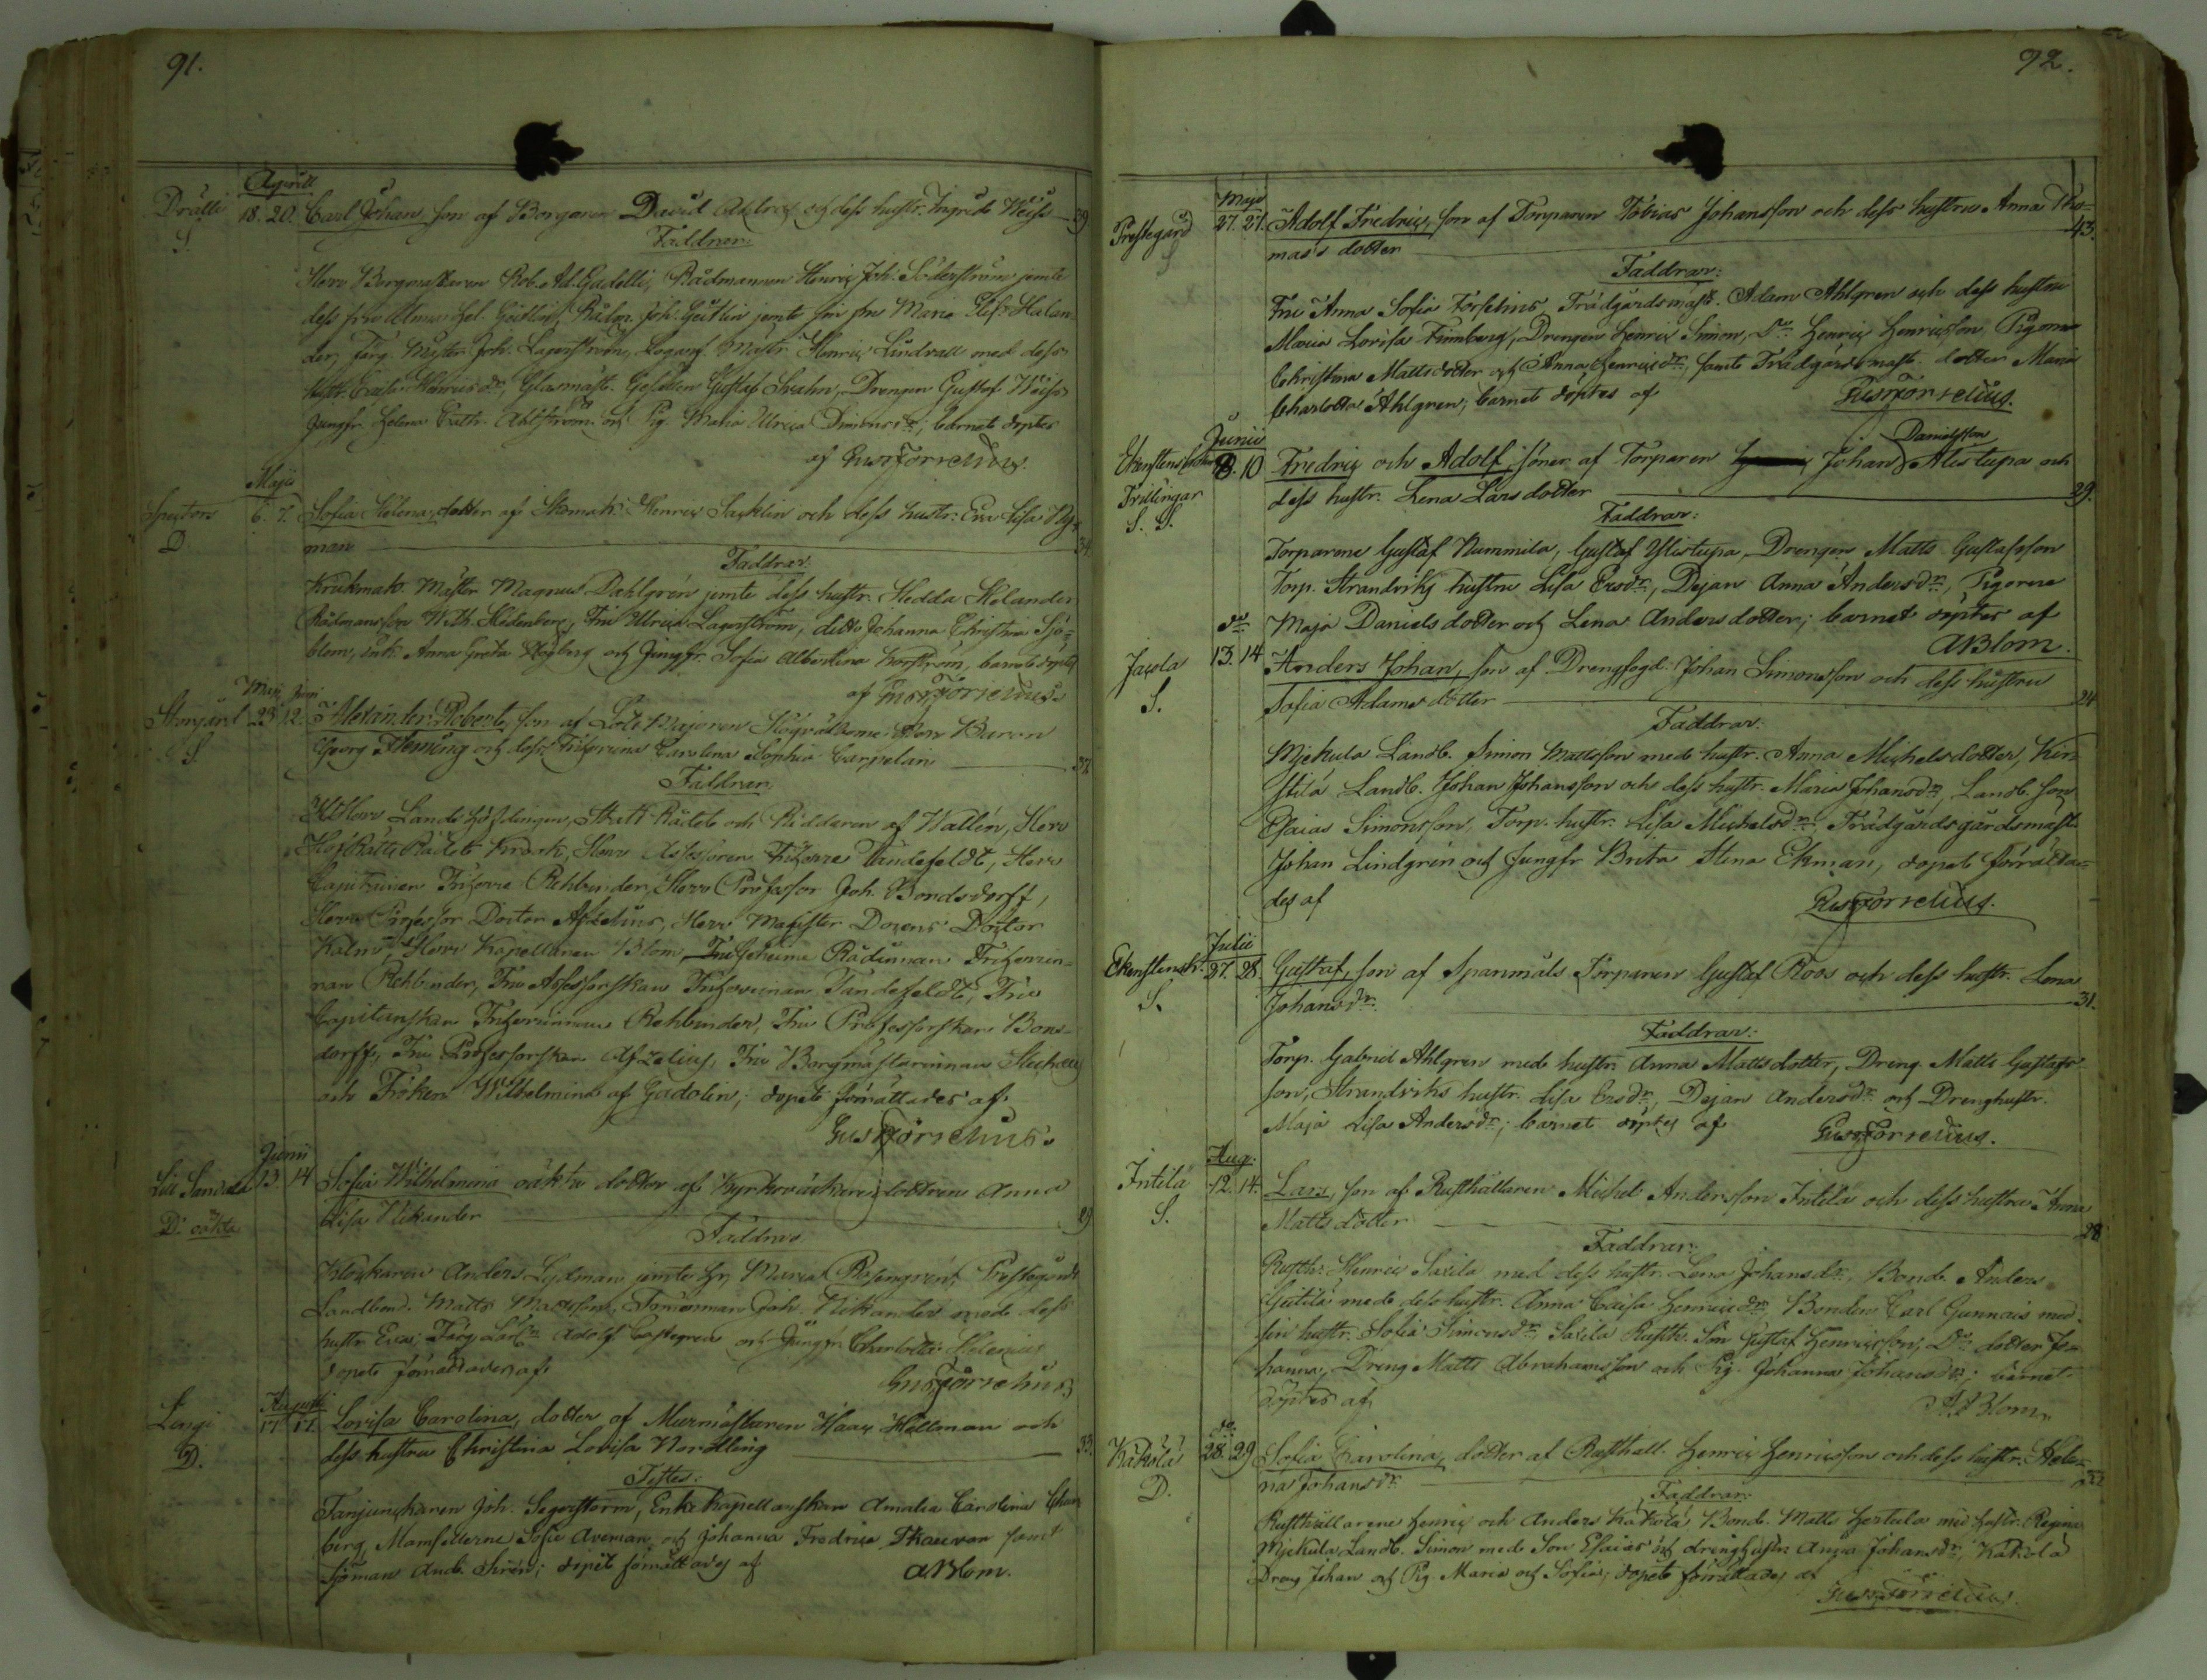 91.
Aprill
Drälli 18. 20. Carl Johan, son af Borgaren David Ahlros och dess hustr. Ingrid Weiss 39
S.
Faddrar:
Herr Borgmästaren Rob. Ad. Gadolli, Rådmannen Henric Joh. Söderström jemte
dess fru Hel. Geitlin, Rådm. Joh. Geitlin jemte sin fru Maria Elis. Helan-
der, Färg. Mäster Joh. Lagerström, Logarf. Mästr. Henric Lindvall med dess
hustr. Henricsdr, Glasmäst. Gesällen Gustaf Svahn, Drengen Gustaf Weiss
Jungfr. Helena Cath. Ahlström och Pig. Maria Ulrica Simonsdr; barnet döptes
af Gust Forselius.
Maji
6. 7. Sofia Helena, dotter af Skomak. Henric Sacklin och dess hustr. Eva Lisa Ny-
D.
man 34
Faddrar:
Krukmak. Mäster Magnus Dahlgren jemte dess hustr. Hedda Helander
Rådmansson W. Th. Hedenberg, Fru Ulrica Lagerström, ditto Johanna Christina Sjö-
blom, enk. Anna Greta Högberg och Jungfr. Sofia Albertina Korström, barnet döptes
af Gust Forselius.
Maji Juni
23 12. Alexander Robert, son af Majoren Högvälborne Herr Baron
S.
Georg Fleming och dess Friherrinna Carolina Sophia Carpelan 37
Faddrar:
Herr Lands Höfdingen, Stats Rådet och Riddaren af Wallen, Herr
HofRätts Rådet Krook, Herr Assessoren Friherre Tandefeldt, Herr
Capitainen Friherre Rehbinder, Herr Professor Joh. Bondsdorff,
Herr Professor Doctor Afzelius, Herr Magister Docens Doctor
Kalm, Herr Kapellanen Blom, Fru Geheime Rådinnan Friherrin-
nan Rehbinder, Fru Assessorskan Friherrinnan Tandefeldt, Fru
Capitainskan Friherrinnan Rehbinder, Fru Professorskan Bons-
dorff, Fru Professorskan Afzelius, Fru Borgmästarinnan
och Fröken Wilhelmina af Gadolin; dopet förrättades af
Gust Forselius.
Junii
13 14 Sofia Wilhelmina oäkta dotter af Kyrkoväktare dottren Anna
D. oäkta
Lisa Nikander 29
Faddrar
Klockaren Anders Lydman jemte h. Maria Rosengren, Prestegårds
Landbond. Matts Mattsson, Timmerman Joh. Nikander med dess
hustr. Eva, Färg. Lärl. Adolf Castegren och Jungfr. Charlotta Helenius
dopet förrättades af
Gust Forselius
Augusti
Lingi 17 17. Lovisa Carolina, dotter af Murmästaren Isaac Hellman och
D.
dess hustru Christina Lovisa Nordling 33.
Testes:
Fanjunckaren Joh. Segerstorm, Enke Kapellanskan Amalia Carolina
berg, Mamsellerne Sofie Aveman och Johanna Fredrica Skauvon samt
Sjöman And. ; dopet förrättades af
A Blom.
92.
Maji
Prestegård 27. 27. Adolf Fredric, son af Torparen Tobias Johansson och dess hustru Anna Tho-
S
mas's dotter 43.
Faddrar:
Fru Anna Sofia Forselius, Trädgårdsmäst. Adam Ahlgren och dess hustru
Maria Lovisa Finnberg, Drengen Henric Simon, Do Henric Henricsson, Pigorna
Christina Mattsdotter och Anna Henricsdr, samt Trädgårdsmäst. dotter Maria
Charlotta Ahlgren; barnet döptes af Gust Forselius.
Junii
8. 10 Fredric och Adolf, söner af Torparen Johan Danielsson Alistupa och
Tvillingar
dess hustr. Lena Larsdotter 29.
S. S.
Faddrar:
Torparene Gustaf Nummila, Gustaf Ylistupa, Drengen Matts Gustafsson
Torp. Strandviks hustru Lisa Ersdr, Dejan Anna Andersdr, Pigorne
Maja Danielsdotter och Lena Andersdotter; barnet döptes af
A Blom.
do
Jacola 13. 14 Anders Johan, son af Drengfogd. Johan Simonsson och dess hustru
S.
Sofia Adamsdotter 24
Faddrar:
Myckula Landb. Simon Mattsson med hustr. Anna Michelsdotter, Kir-
stilä Landb. Johan Johansson och dess hustr. Maria Johansdr, Landb. son
Esaias Simonsson, Torp. hustr. Lisa Michelsdr, Trädgårdsgårdsmäst.
Johan Lindgren och Jungfr Brita Stina Ekman, dopet förrätta-
des af Gust Forselius.
Julii
Ekenstensh. 27. 28. Gustaf, son af Spanmåls Torparen Gustaf Roos och dess hustr. Lena
S.
Johansdr. 31.
Faddrar:
Torp. Gabriel Ahlgren med hustr. Anna Mattsdotter, Dreng. Matts Gustafs-
son, Strandviks hustr. Lisa Ersdr, Dejan Andersdr och Drenghustr.
Maja Lisa Andersdr; barnet döptes af Gust Forselius.
Aug.
Intilä 12. 14. Lars, son af Rusthållaren Michel Andersson Intilä och dess hustru Anna
S.
Mattsdotter 28
Faddrar:
Rusth. Henric Saxila med dess hustr. Lena Johansdr, Bond. Anders
med dess hustr. Anna Caisa Henricsdr, Bonden Carl Gunnais med
sin hustr. Sofia Simonsdr, Saxila Rusth. Son Gustaf Henricsson, Do dotter Jo-
hanna, Dreng Matts Abrahamsson och Pig. Johanna Johansdr; barnet
döptes af
A Blom.
do
Käkölä 28. 29 Sofia Carolina, dotter af Rusthåll. Henric Henricsson och dess hustr. Hele-
D.
na Johansdr
Faddrar:
Rusthållarene Henric och Anders Käkölä, Bond. Matts Hertula med hustr. Regina
Myckula Landb. Simon med Son Esaias och drenghustr. Anna Johansdr, Käkölä
Dreng Johan och Pig. Maria och Sofia; dopet förrättades af
Gust Forselius.